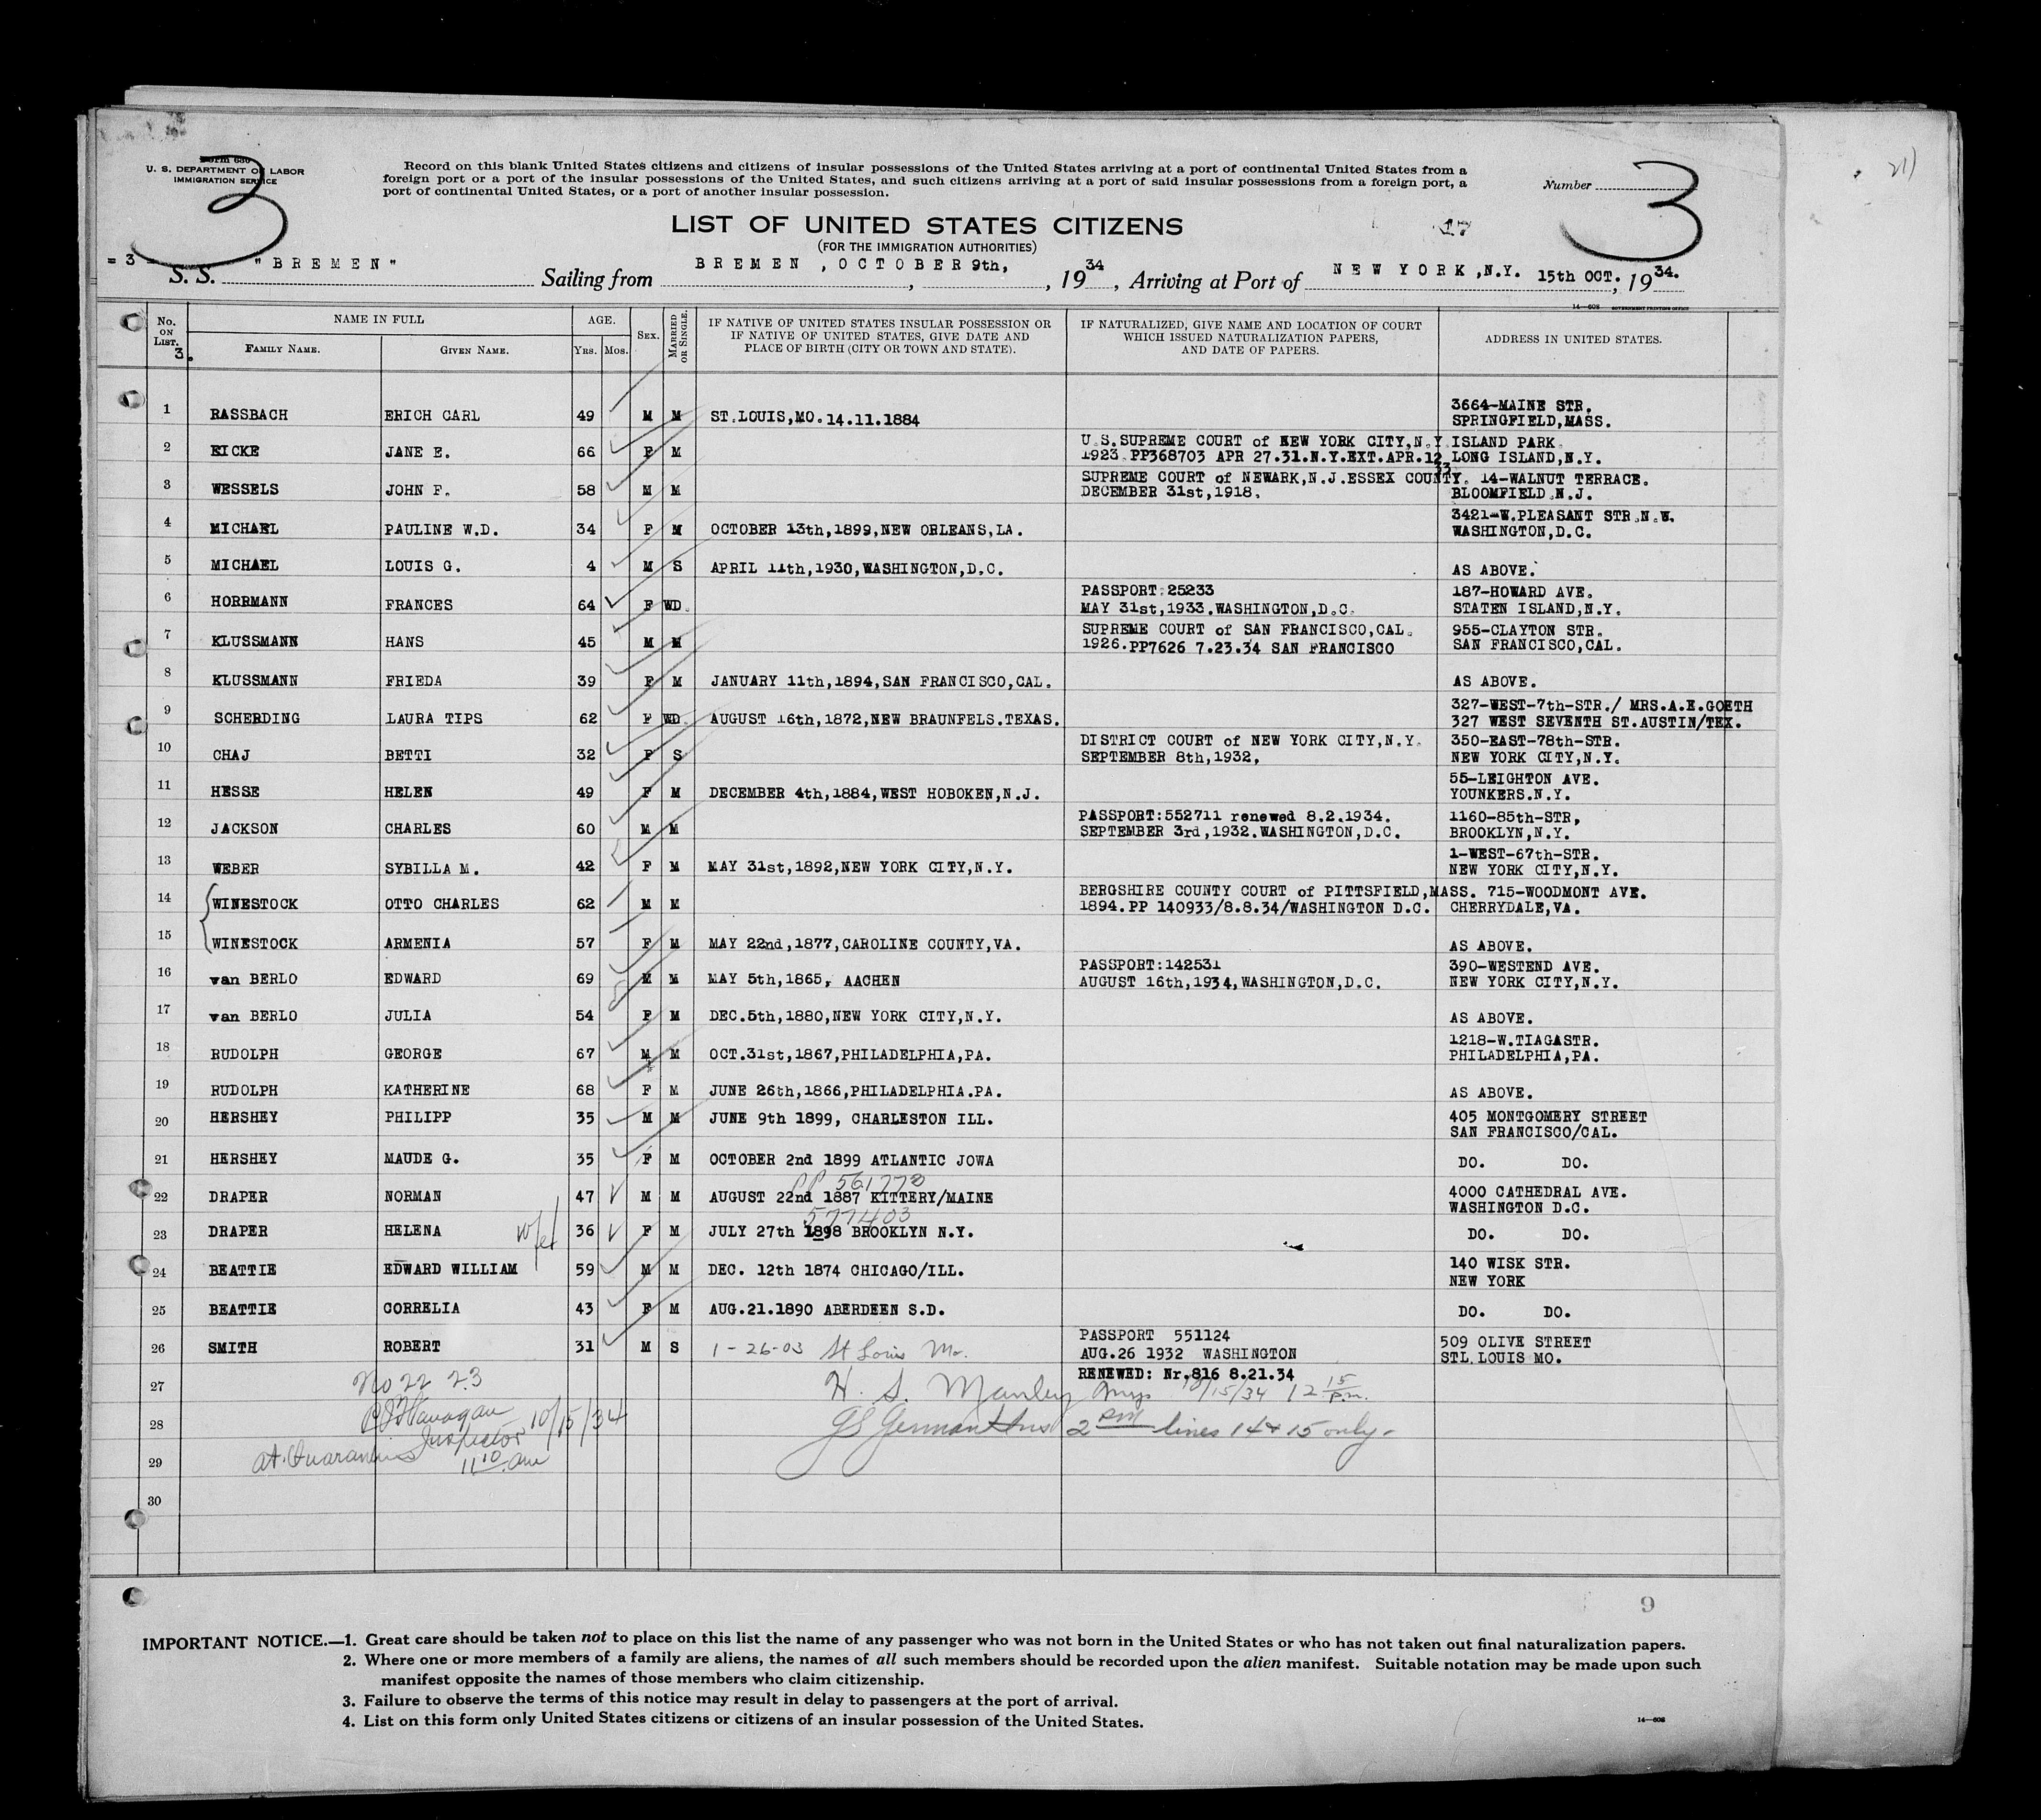 Form 630
U. S. DEPARTMENT OF LABOR
IMMIGRATION SERVICE
3
Record on this blank United States citizens and citizens of insular possessions of the United States arriving at a port of continental United States from a
foreign port or a port of the insular possessions of the United States, and such citizens arriving at a port of said insular possessions from a foreign port, a
port of continental United States, or a port of another insular possession.
Number 3
21)
LIST OF UNITED STATES CITIZENS
(FOR THE IMMIGRATION AUTHORITIES)
17
= 3 - S. S. "BREMEN" Sailing from BREMEN, OCTOBER 9th, 1934, Arriving at Port of NEW YORK, N.Y. 15th OCT. 1934.
14—608 GOVERNMENT PRINTING OFFICE
No. ON LIST. 3. NAME IN FULL FAMILY NAME. GIVEN NAME. AGE. Yrs. Mos. SEX. MARRIED OR SINGLE. IF NATIVE OF UNITED STATES INSULAR POSSESSION OR IF NATIVE OF UNITED STATES, GIVE DATE AND PLACE OF BIRTH (CITY OR TOWN AND STATE). IF NATURALIZED, GIVE NAME AND LOCATION OF COURT WHICH ISSUED NATURALIZATION PAPERS, AND DATE OF PAPERS. ADDRESS IN UNITED STATES.
1 RASSBACH ERICH CARL 49 M M ST.LOUIS,MO.14.11.1884 3664-MAINE STR. SPRINGFIELD,MASS.
2 EICKE JANE E. 66 F M U.S.SUPREME COURT of NEW YORK CITY,N.Y. 1923.PP368703 APR 27.31.N.Y.EXT.APR.12 33 ISLAND PARK. LONG ISLAND,N.Y.
3 WESSELS JOHN F. 58 M M SUPREME COURT of NEWARK,N.J.ESSEX COUNTY. DECEMBER 31st,1918. 14-WALNUT TERRACE. BLOOMFIELD.N.J.
4 MICHAEL PAULINE W.D. 34 F M OCTOBER 13th,1899,NEW ORLEANS,LA. 3421-W.PLEASANT STR.N.W. WASHINGTON,D.C.
5 MICHAEL LOUIS G. 4 M S APRIL 11th,1930,WASHINGTON,D.C. AS ABOVE.
6 HORRMANN FRANCES 64 F WD. PASSPORT:25233 MAY 31st,1933.WASHINGTON,D.C. 187-HOWARD AVE. STATEN ISLAND,N.Y.
7 KLUSSMANN HANS 45 M M SUPREME COURT of SAN FRANCISCO,CAL. 1926.PP7626 7.23.34 SAN FRANCISCO 955-CLAYTON STR. SAN FRANCISCO,CAL.
8 KLUSSMANN FRIEDA 39 F M JANUARY 11th,1894,SAN FRANCISCO,CAL. AS ABOVE.
9 SCHERDING LAURA TIPS 62 F WD. AUGUST 16th,1872,NEW BRAUNFELS.TEXAS. 327-WEST-7th-STR./ MRS.A.E.GOETH 327 WEST SEVENTH ST.AUSTIN/TEX.
10 CHAJ BETTI 32 F S DISTRICT COURT of NEW YORK CITY,N.Y. SEPTEMBER 8th,1932, 350-EAST-78th-STR. NEW YORK CITY,N.Y.
11 HESSE HELEN 49 F M DECEMBER 4th,1884,WEST HOBOKEN,N.J. 55-LEIGHTON AVE. YOUNKERS.N.Y.
12 JACKSON CHARLES 60 M M PASSPORT:552711 renewed 8.2.1934. SEPTEMBER 3rd,1932.WASHINGTON,D.C. 1160-85th-STR, BROOKLYN,N.Y.
13 WEBER SYBILLA M. 42 F M MAY 31st,1892,NEW YORK CITY,N.Y. 1-WEST-67th-STR. NEW YORK CITY,N.Y.
14 WINESTOCK OTTO CHARLES 62 M M BERGSHIRE COUNTY COURT of PITTSFIELD,MASS. 1894.PP 140933/8.8.34/WASHINGTON D.C. 715-WOODMONT AVE. CHERRYDALE,VA.
15 WINESTOCK ARMENIA 57 F M MAY 22nd,1877,CAROLINE COUNTY,VA. AS ABOVE.
16 van BERLO EDWARD 69 M M MAY 5th,1865, AACHEN PASSPORT:142531 AUGUST 16th,1934,WASHINGTON,D.C. 390-WESTEND AVE. NEW YORK CITY,N.Y.
17 van BERLO JULIA 54 F M DEC.5th,1880,NEW YORK CITY,N.Y. AS ABOVE.
18 RUDOLPH GEORGE 67 M M OCT.31st,1867,PHILADELPHIA,PA. 1218-W.TIAGASTR. PHILADELPHIA,PA.
19 RUDOLPH KATHERINE 68 F M JUNE 26th,1866,PHILADELPHIA.PA. AS ABOVE.
20 HERSHEY PHILIPP 35 M M JUNE 9th 1899, CHARLESTON ILL. 405 MONTGOMERY STREET SAN FRANCISCO/CAL.
21 HERSHEY MAUDE G. 35 F M OCTOBER 2nd 1899 ATLANTIC JOWA DO. DO.
22 DRAPER NORMAN 47 M M PP 561773 AUGUST 22nd 1887 KITTERY/MAINE 4000 CATHEDRAL AVE. WASHINGTON D.C.
23 DRAPER HELENA 36 F M 577403 JULY 27th 1898 BROOKLYN N.Y. DO. DO.
24 BEATTIE EDWARD WILLIAM 59 M M DEC. 12th 1874 CHICAGO/ILL. 140 WISK STR. NEW YORK
25 BEATTIE CORRELIA 43 F M AUG.21.1890 ABERDEEN S.D. DO. DO.
26 SMITH ROBERT 31 M S 1-26-03 St Louis Mo. PASSPORT 551124 AUG.26 1932 WASHINGTON RENEWED: Nr.816 8.21.34 509 OLIVE STREET STL.LOUIS MO.
27 No 22 23 H. S. Manley Insp 10/15/34 12 15 p.m.
28 Flanagan Inspector 10/15/34 German Ins 2 PM lines 14 & 15 only -
29 At Quarantine 11 10 am
30
9
IMPORTANT NOTICE.—1. Great care should be taken not to place on this list the name of any passenger who was not born in the United States or who has not taken out final naturalization papers.
2. Where one or more members of a family are aliens, the names of all such members should be recorded upon the alien manifest. Suitable notation may be made upon such
manifest opposite the names of those members who claim citizenship.
3. Failure to observe the terms of this notice may result in delay to passengers at the port of arrival.
4. List on this form only United States citizens or citizens of an insular possession of the United States.
14—608